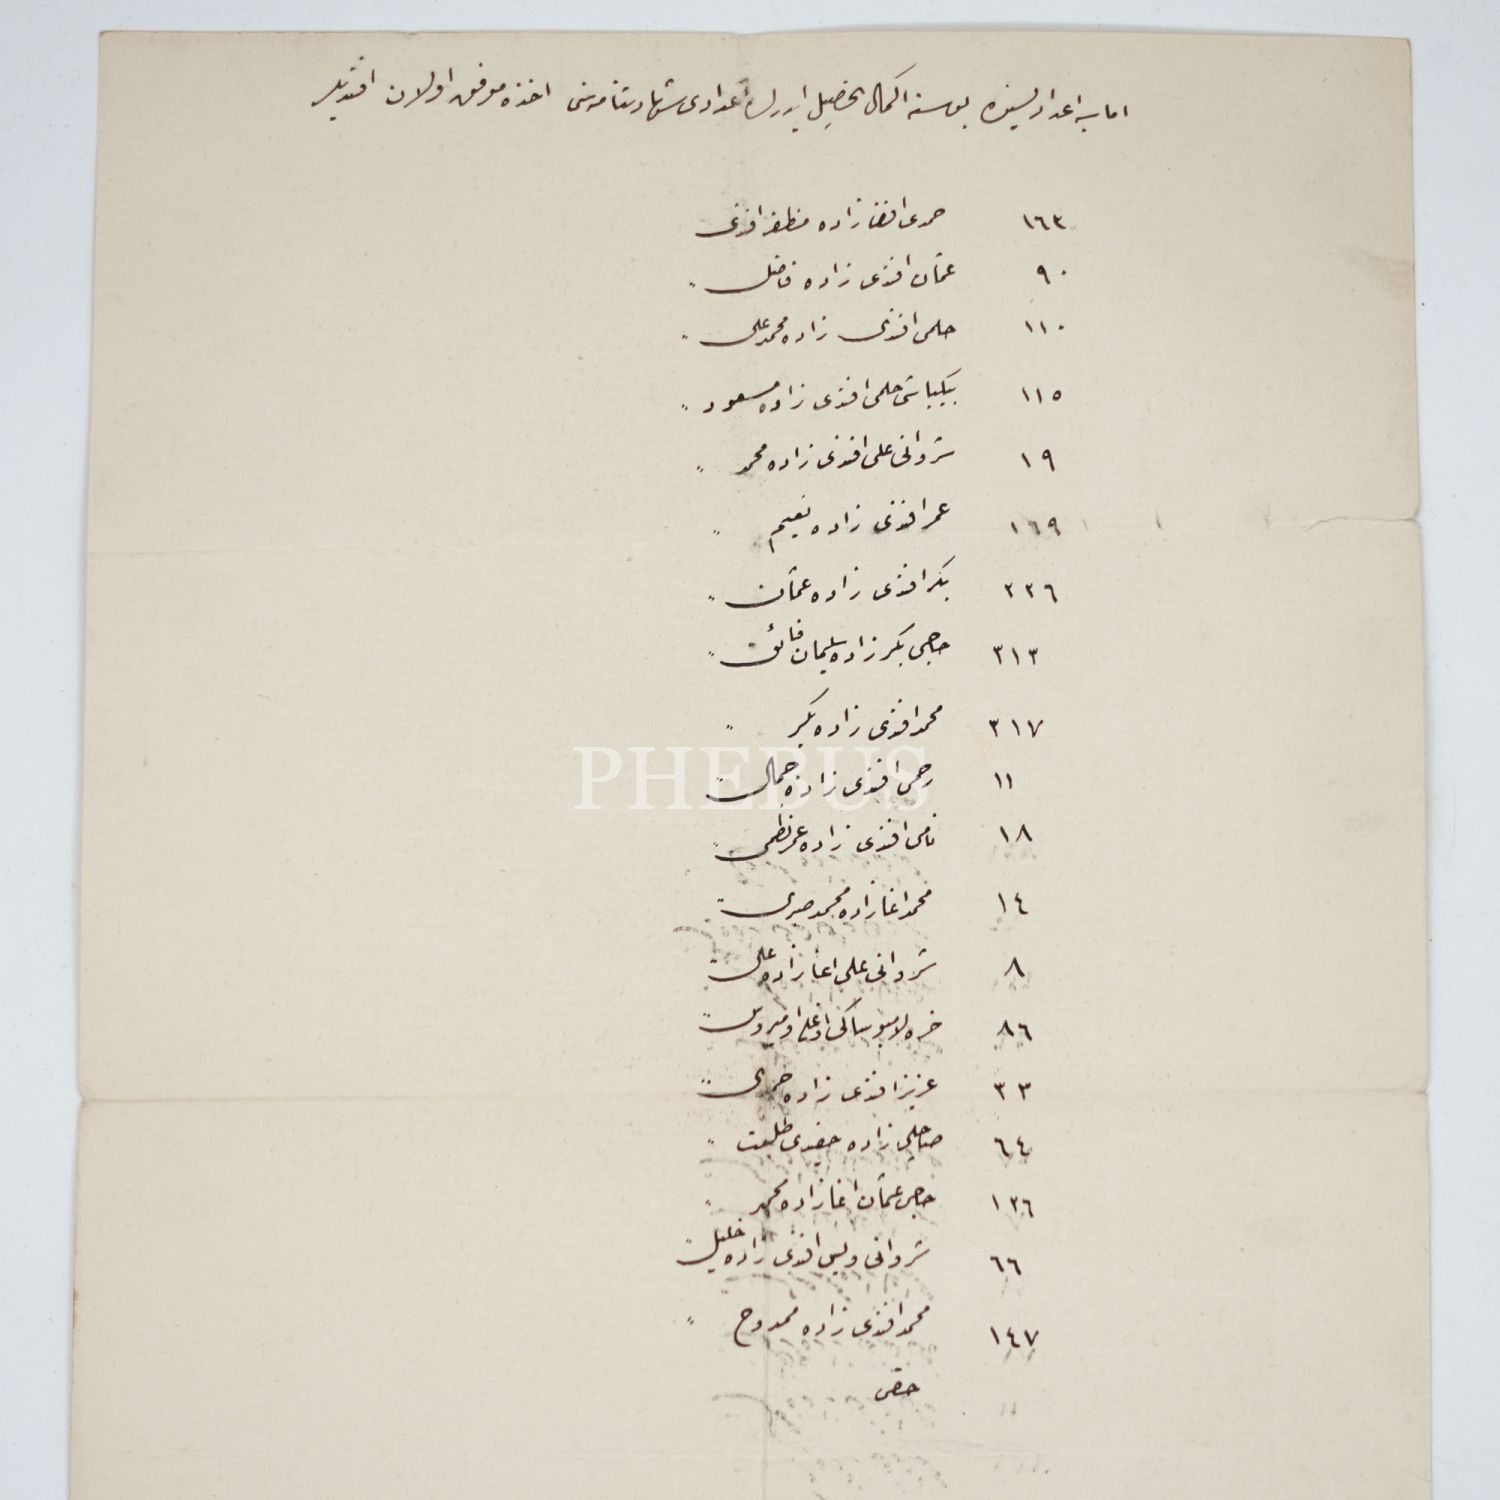 اماسيه اعداديسنده بو سنه اكمال تحصيل ايدرك اعدادى شهادتنامه‌سنى اخذه موفق اولان افنديلر
١٦٣ حمدى افندى زاده مظفر افندى
٩٠ عثمان افندى زاده فاضل "
١١٠ حلمى افندى زاده محمد على "
١١٥ بيكباشى حلمى افندى زاده مسعود "
١٩ شروانى على افندى زاده محمد "
١٦٩ عمر افندى زاده نعيم "
٢٢٦ بكر افندى زاده عثمان "
٣١٣ حاجى بكر زاده سليمان فائق "
٣١٧ محمد افندى زاده بكر "
١١ رحمى افندى زاده جمال "
١٨ نامى افندى زاده عمر نظمى "
١٤ محمد اغا زاده محمد صبرى "
٨ شروانى على اغا زاده على "
٨٦ اوغلى "
٣٣ عزيز افندى زاده حمدى "
٦٤ زاده طلعت "
١٢٦ حاجى عثمان اغا زاده محمد "
٦٦ شروانى ويس افندى زاده خليل "
١٤٧ محمد افندى زاده ممدوح "
حقى
PHEBUS